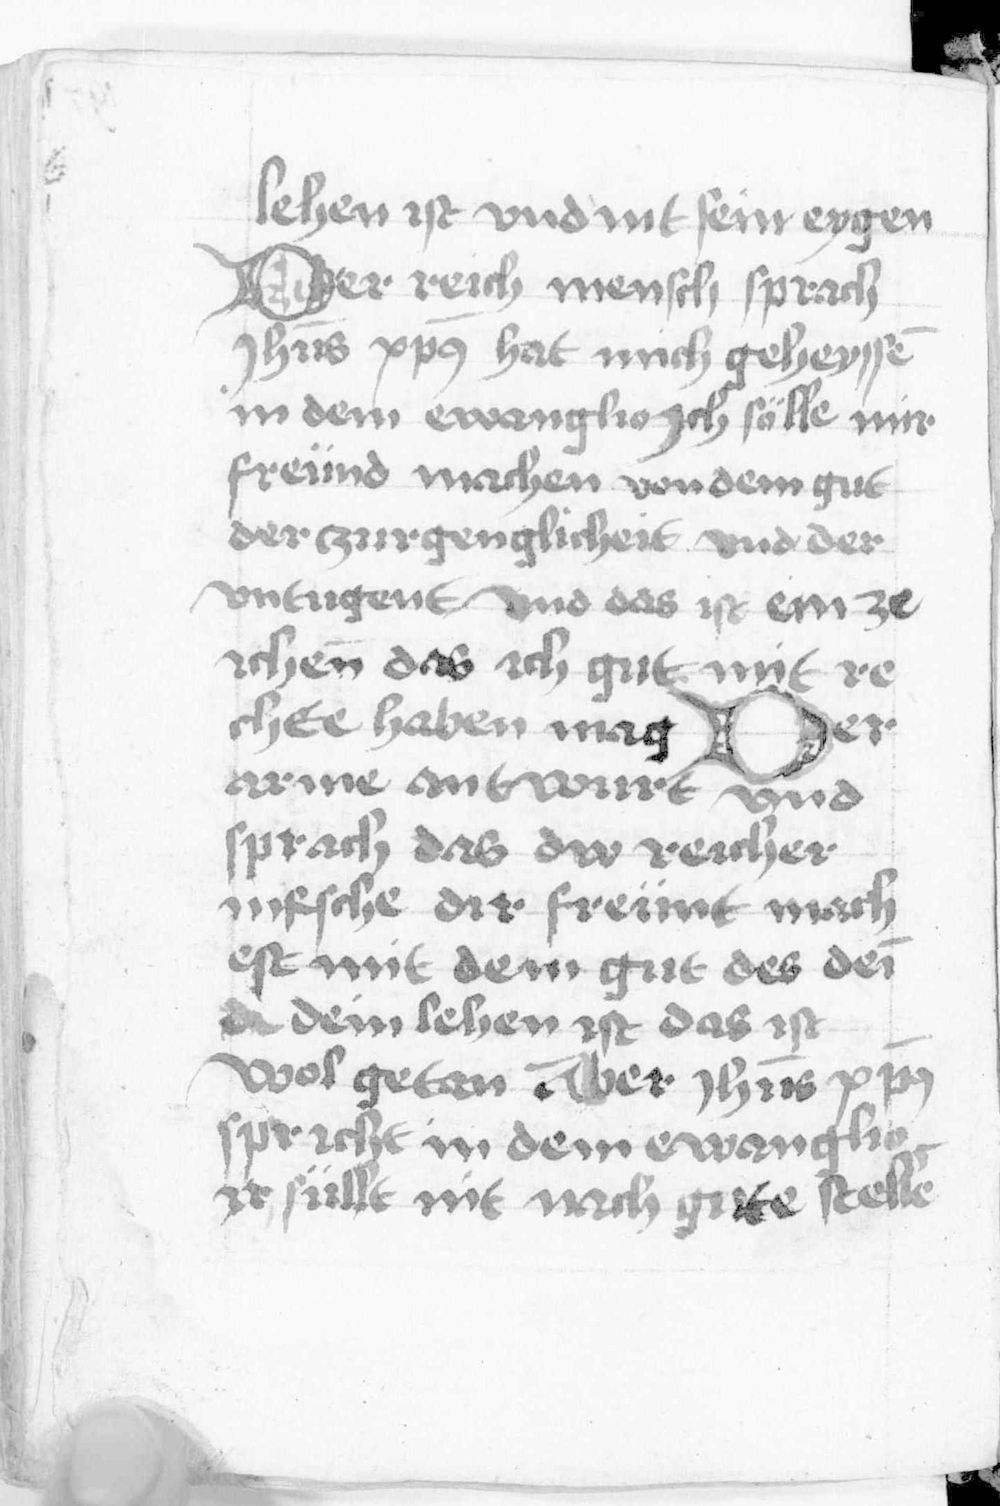 lehen ist vnd nit sein eygen
Der reich mensch sprach
Jhūs xp̄s hat mich geheyssē
in dem ewanglio Jch sölle mir
freünd machen von dem gut
der zurgenglicheit vnd der
vntugent vnd das ist ein ze
ichen̄ das ich gut mit re
chte haben mag Der
arme antwurt vnd
sprach das dw reicher
mēsche dir freünt mach
est mit dem gut des deī
dein lehen ist das ist
wol getan Aber Jhūs xp̄s
spricht in dem ewanglio
ir süllt nit nach gute stellē